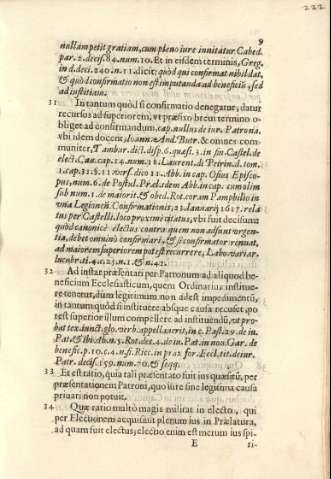 222
9
nullam petit gratiam, cum pleno iure innitatur. Cabed.
par. 2. decis. 84. num. 10. Et in eisdem terminis, Greg.
in d. deci. 240. n. 11. dicit; quòd qui confirmat nihil dat,
& quòd confirmatio non est imputanda ad beneficiũ, sed
ad iustitiam.
31 In tantum quòd si confirmatio denegatur, datur
recursus ad superiorem, vt præfixo breui termino o-
bliget ad confirmandum, cap. nullus de iur. Patrona.
vbi idem docent, Ioann. And. Butr. & omnes com-
muniter, Tambur. dict. disp. 6. quæst. 3. in fin. Castel. de
elect. Can. cap. 14. num. 16. Laurent. di Peirin. d. tom.
1. cap. 31. §. 11. vers. dico 11. Abb. in cap. Osius Episco-
pus, num. 6. de Postul. Præl. idem Abb. in cap. cum olim
sub num. 1. de maiorit. & obed. Rot. coram Pamphilio in
vna Legionen. Confirmationis, 23. Ianuarij 1617. rela-
tus per Castelli. loco proximè citatus, vbi fuit decisum
quòd canonicè electus contra quem non adsunt vrgen-
tia, debet omninò confirmari, & si confirmator renuat,
ad maiorem superiorem potest recurrere, Labo. variar.
lucubrat. 4. c. 23. n. 1. & n. 42.
32 Ad instar præsentati per Patronum ad aliquod be-
neficium Ecclesiasticum, quem Ordinarius institue-
re tenetur, dum legitimum non adest impedimentũ,
in tantum quòd si instituere absque causa recuset, po
test superior illum compellere ad instituendũ, vt pro-
bat tex. iunct. glo. verb. appellauerit, in c. Past. 29. de iu.
Pat. & ibi Abb. n. 5. Rot. dec. 4. de iu. Pat. in non. Gar. de
benefic. p. 10. c. 4. n. 5. Ricc. in prax. for. Eccl. tit. de iur.
Patr. decis. 159. num. 70. & seqq.
33 Et est ratio, quia tali præsentato fuit ius quæsitũ, per
præsentationem Patroni, quo iure sine legitima causa
priuari non potuit.
34 Quæ ratio multò magis militat in electo, qui
per Electionem acquisiuit plenum ius in Prælatura,
ad quam fuit electus; electio enim est merum ius spi-
E
ri-